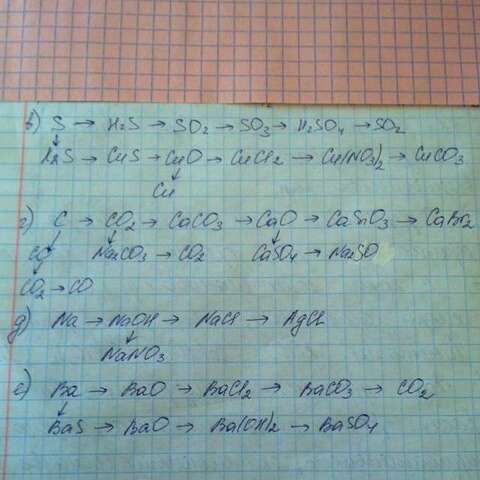 в) S → H2S → SO2 → SO3 → H2SO4 → SO2
↓
Na2S → CuS → CuO → CuCl2 → Cu(NO3)2 → CuCO3
↓
Cu
г) C → CO2 → CaCO3 → CaO → CaSiO3 → CaBr2
CO Na2CO3 → CO2 CaSO4 → Na2SO
CO2 → CO
д) Na → NaOH → NaCl → AgCl
↓
NaNO3
е) Ba → BaO → BaCl2 → BaCO3 → CO2
↓
BaS → BaO → Ba(OH)2 → BaSO4